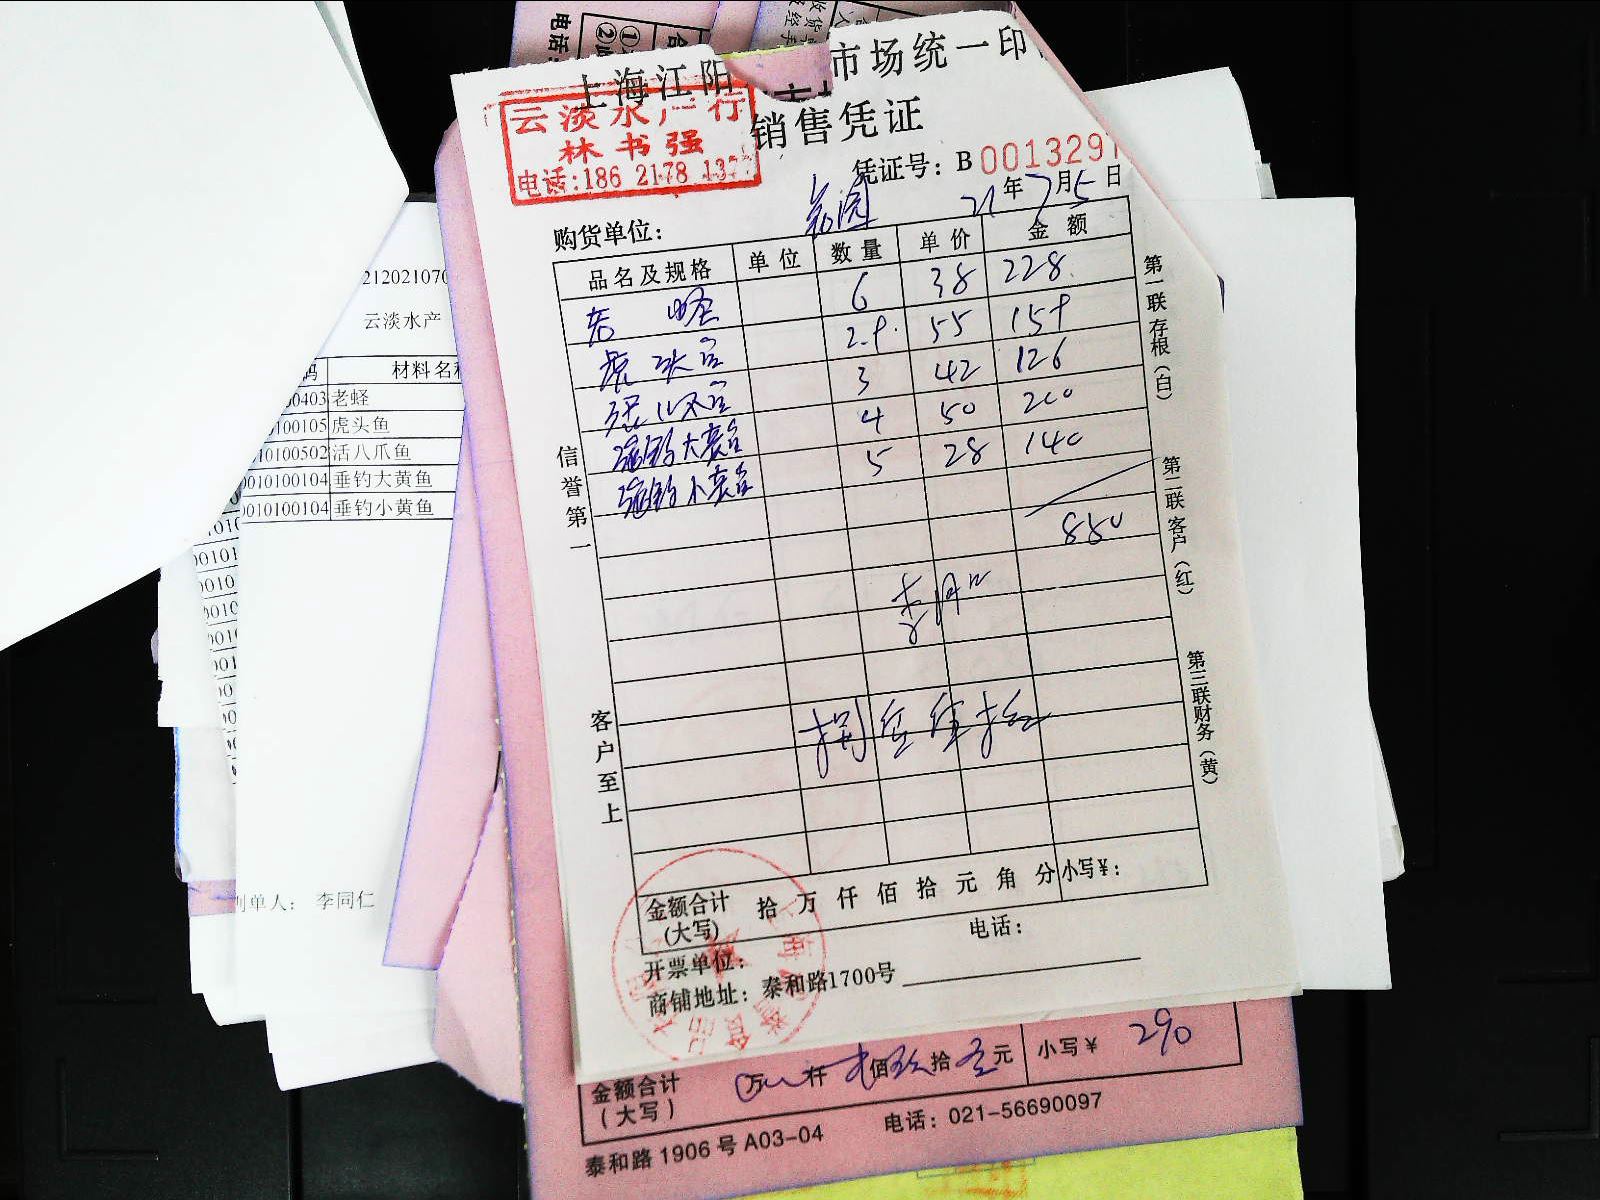 电话:
上海江阳
市场统一印
销售凭证
云淡水产行
林书强
电话:186 2178 13
凭证号: B 001329
21年7月5日
购货单位:
品名及规格 单位 数量 单价 金额
老蛏 6 38 228
虎头鱼 2.9 55 159
活八爪鱼 3 42 126
垂钓大黄鱼 4 50 200
垂钓小黄鱼 5 28 140
880
捌佰 拾
信誉第一
客户至上
第一联存根(白)
第二联客户(红)
第三联财务(黄)
金额合计(大写) 拾万仟佰拾元角分 小写¥:
开票单位: 电话:
商铺地址: 泰和路1700号
金额合计(大写) 万 仟 佰 拾 元 小写¥ 290
泰和路1906号A03-04 电话: 021-56690097
212021070
云淡水产
码 材料名称
00403 老蛏
0100105 虎头鱼
0100502 活八爪鱼
0010100104 垂钓大黄鱼
0010100104 垂钓小黄鱼
制单人: 李同仁